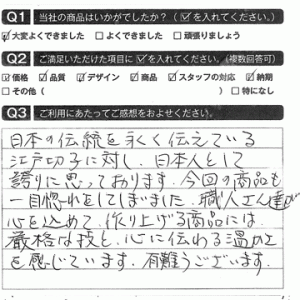 Q1 当社の商品はいかがでしたか？（☑を入れてください。）
☑大変よくできました □よくできました □頑張りましょう
Q2 ご満足いただけた項目に☑を入れてください。（複数回答可）
☑価格 ☑品質 ☑デザイン ☑商品 ☑スタッフの対応 ☑納期
□その他（ ） □特になし
Q3 ご利用にあたってご感想をおよせください。
日本の伝統を永く伝えている
江戸切子に対し、日本人として
誇りに思っております。今回の商品も
一目惚れをしてしまいました。職人さん達が
心を込めて、作り上げる商品には、
厳格な技と、心に伝わる温かさ
を感じています。有難うございます。